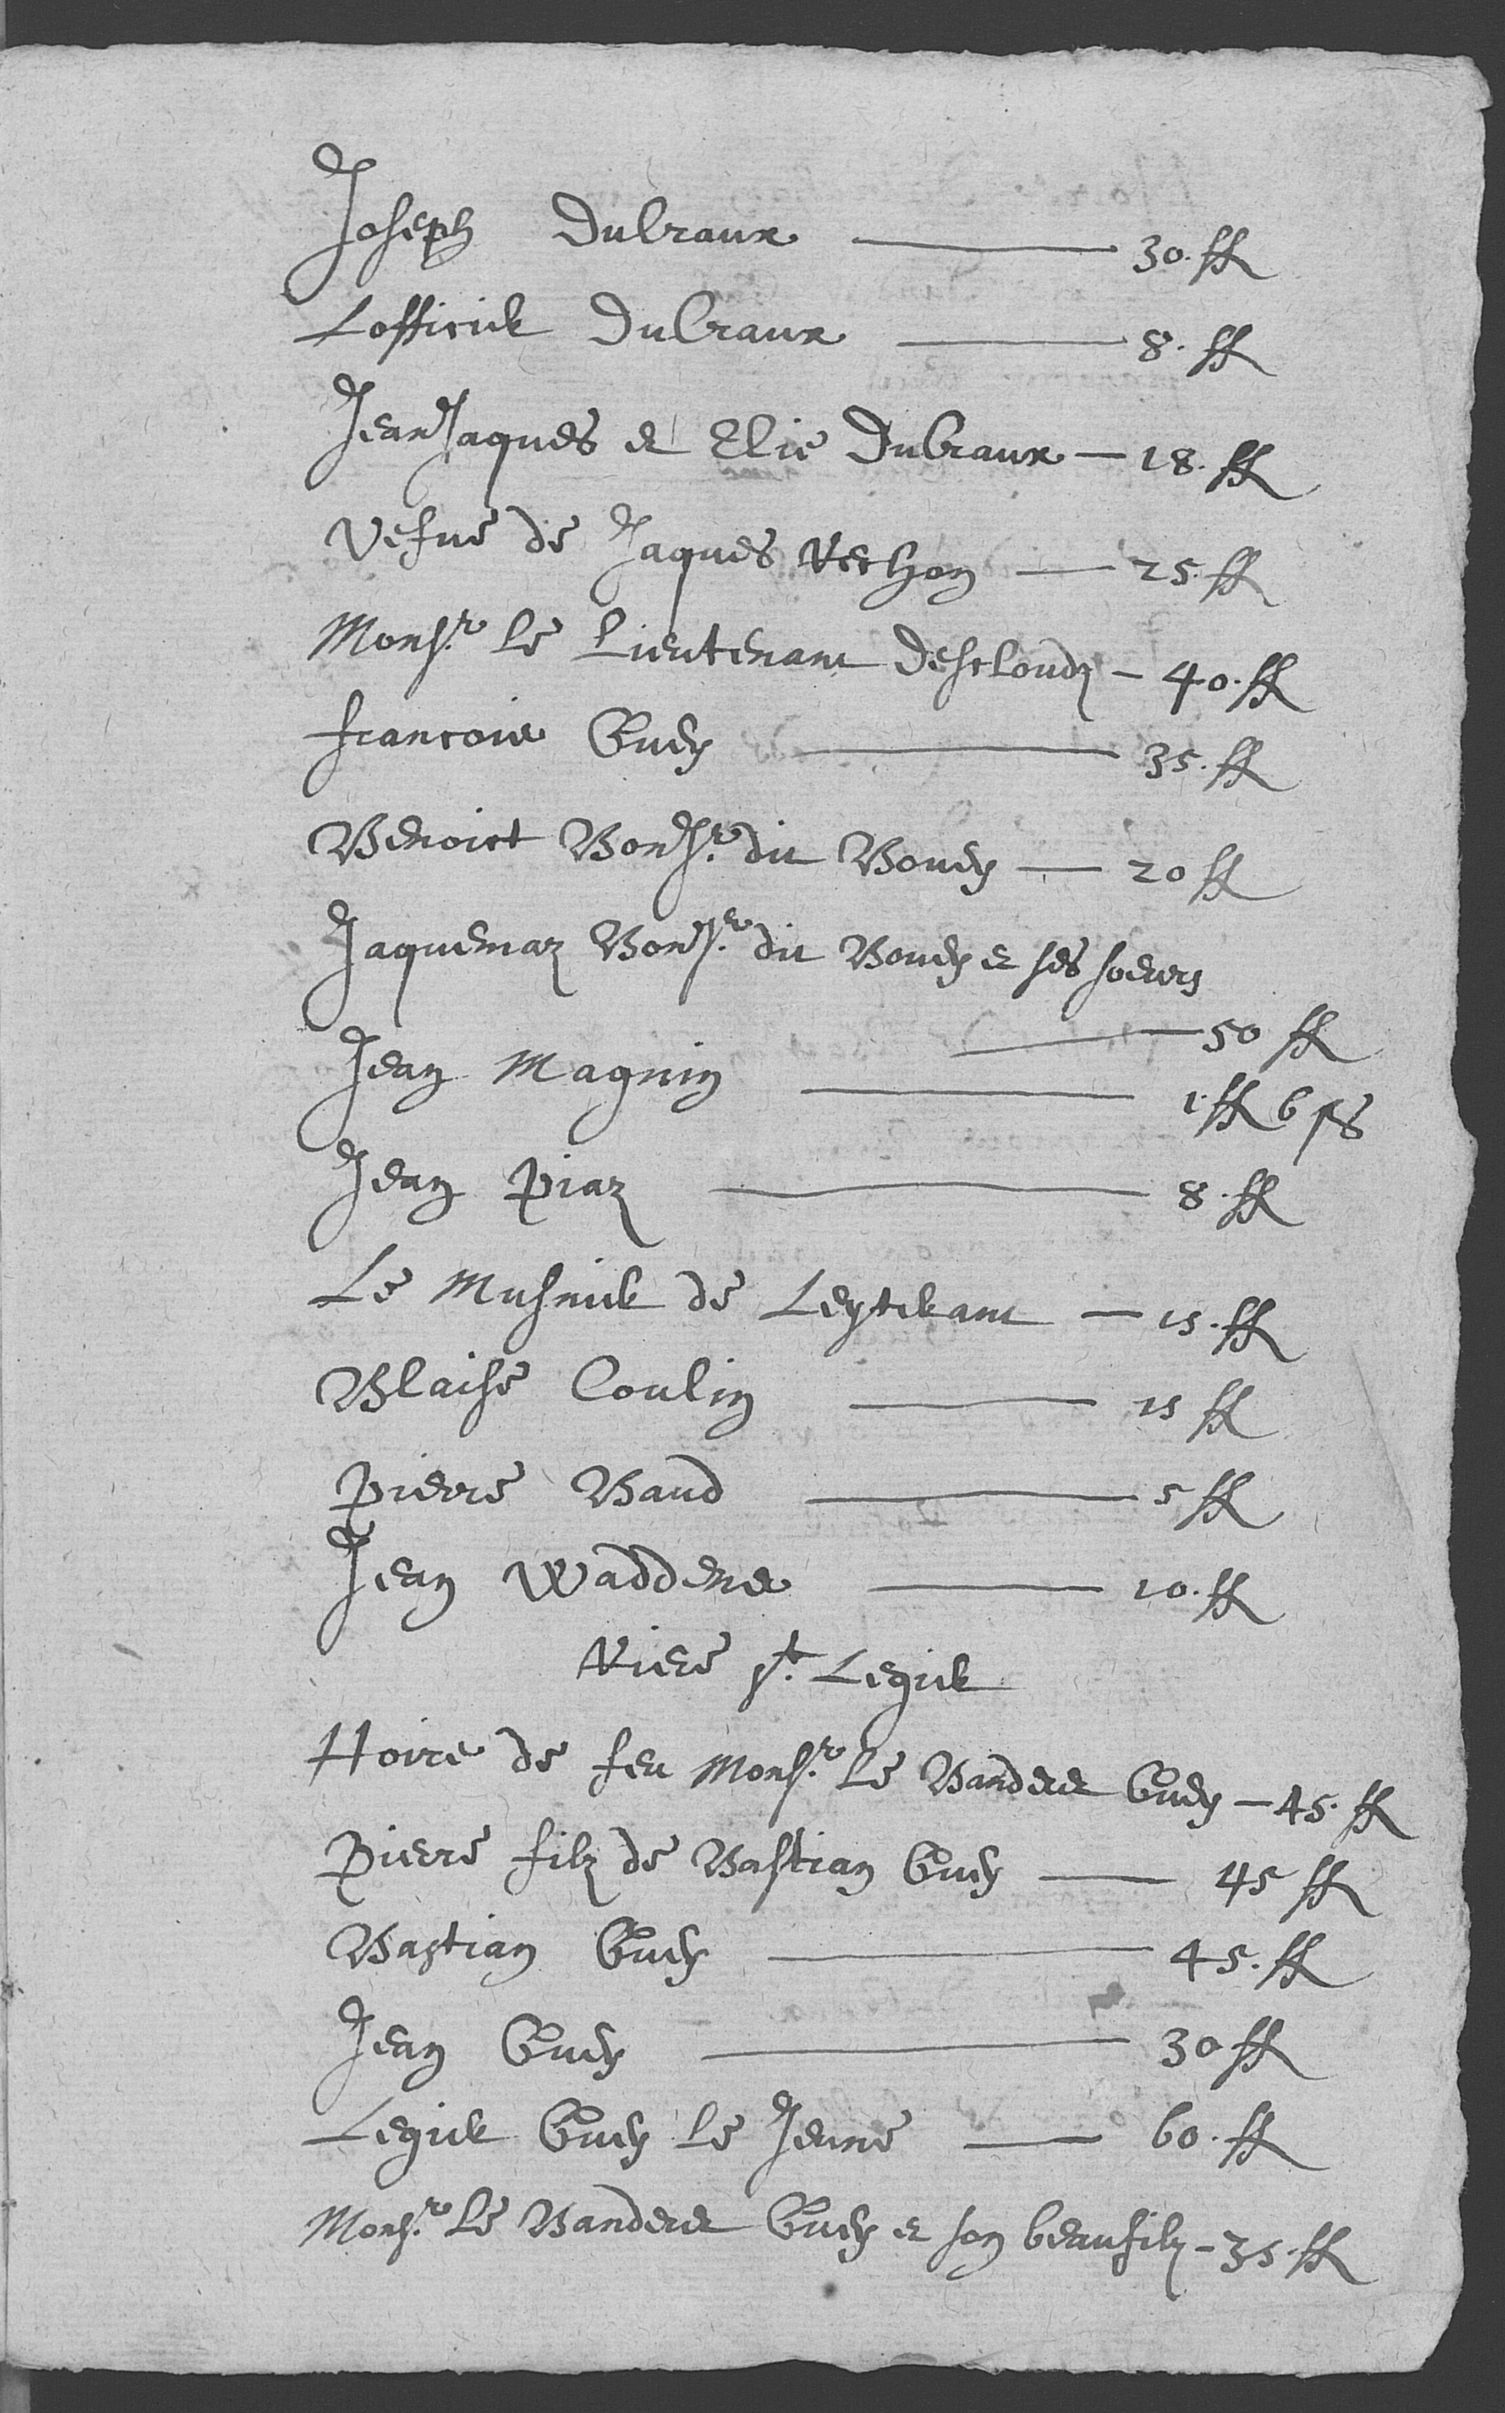 Joseph Dulraux — 30. ff
Lofficier Dulraux — 8. ff
Jean Jaques et Elie Dulraux — 18. ff
Vefue de Jaques Rechon — 25. ff
Monsr. le Lieutenant Descloudz — 40. ff
francois Guex — 35. ff
Benoict Bonjr. dit Bouey — 20 ff
Jaquemaz Bonjr. dit Bouey et ses soeurs
— 50 ff
Jean Magnin — 1. ff 6 ss
Jean Piaz — 8. ff
Le Musnier de Leyterant — 15. ff
Blaise Coulin — 15 ff
Pierre Baud — 5 ff
Jean Waddens — 10. ff
Riere St. Legier
Hoirs de feu Monsr. le Banderet Guex — 45. ff
Pierre filz de Bastian Guex — 45 ff
Bastian Guex — 45. ff
Jean Guex — 30 ff
Legier Guex le Jeune — 60. ff
Monsr. le Banderet Guex et son beaufilz — 35. ff